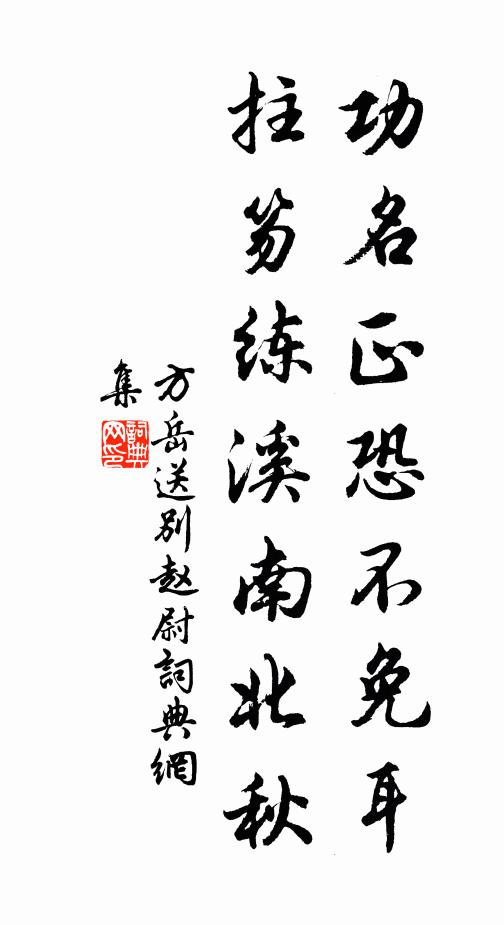 功名正恐不免耳
拄笏练溪南北秋
方岳送别赵尉詞典網
集
詞典网印